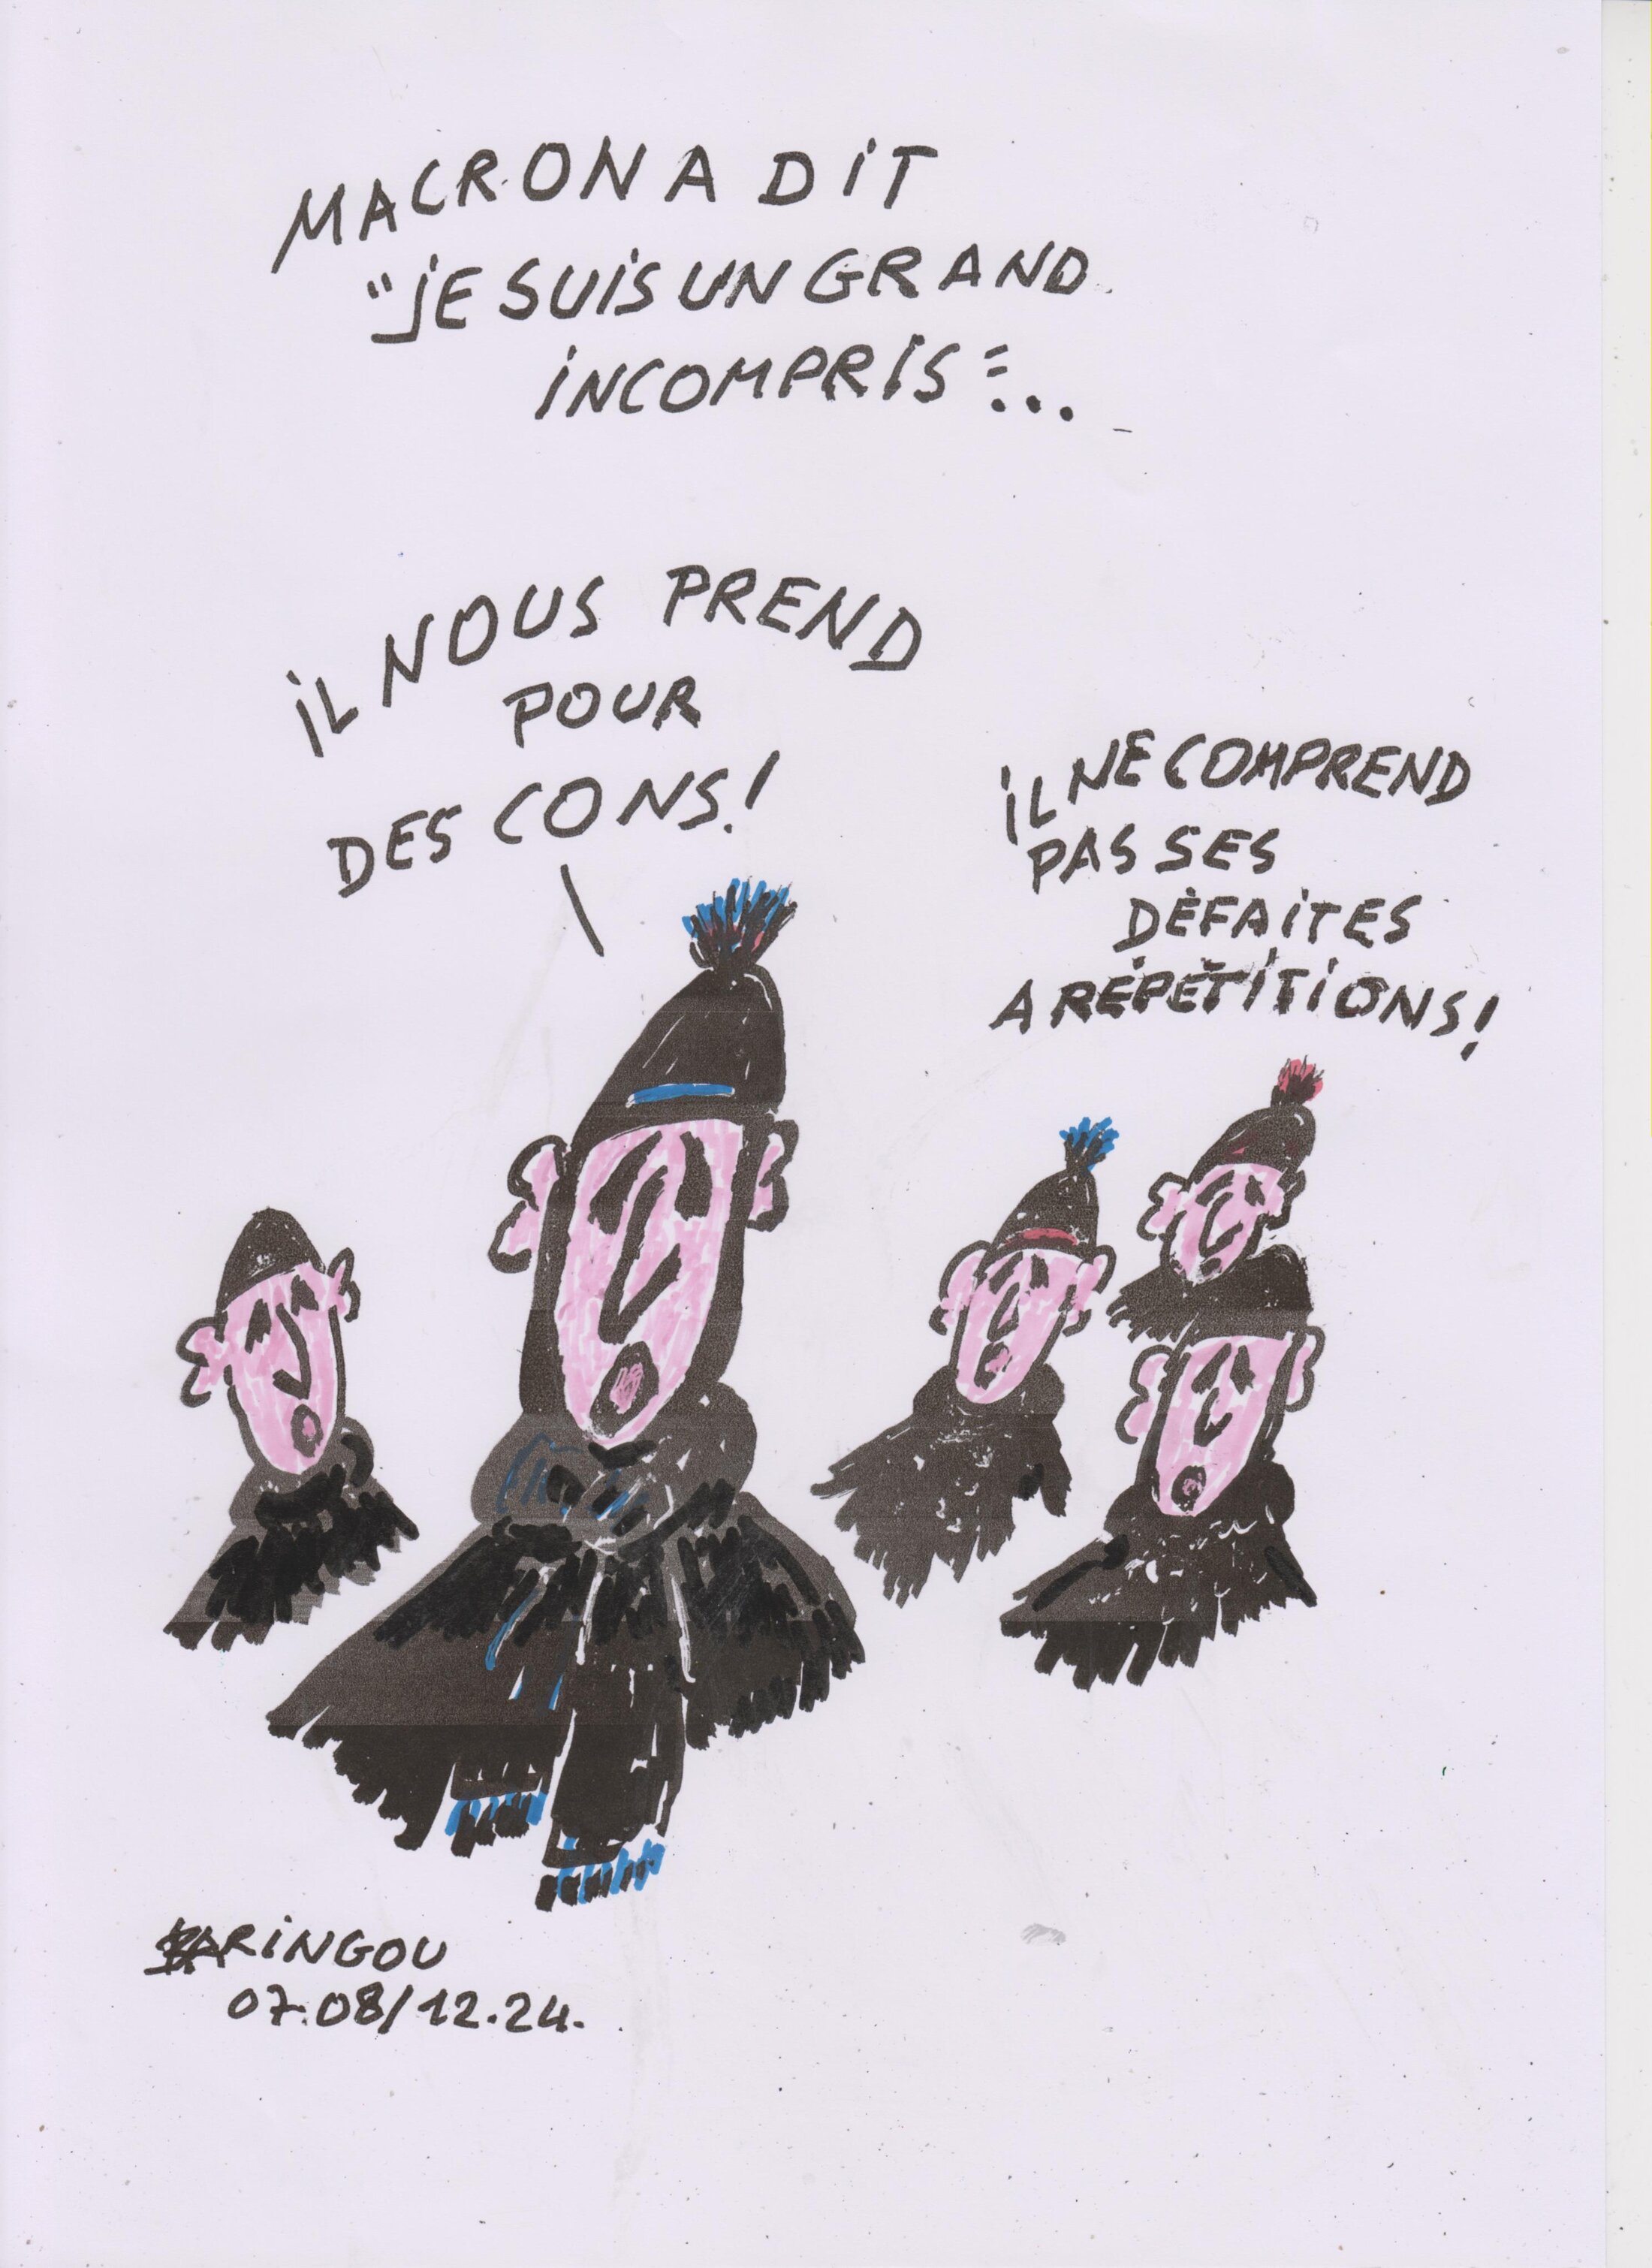 MACRON A DIT
"JE SUIS UN GRAND
INCOMPRIS"...
IL NOUS PREND
POUR
DES CONS!
IL NE COMPREND
PAS SES
DÉFAITES
A RÉPÉTITIONS!
KARINGOU
07.08/12.24.